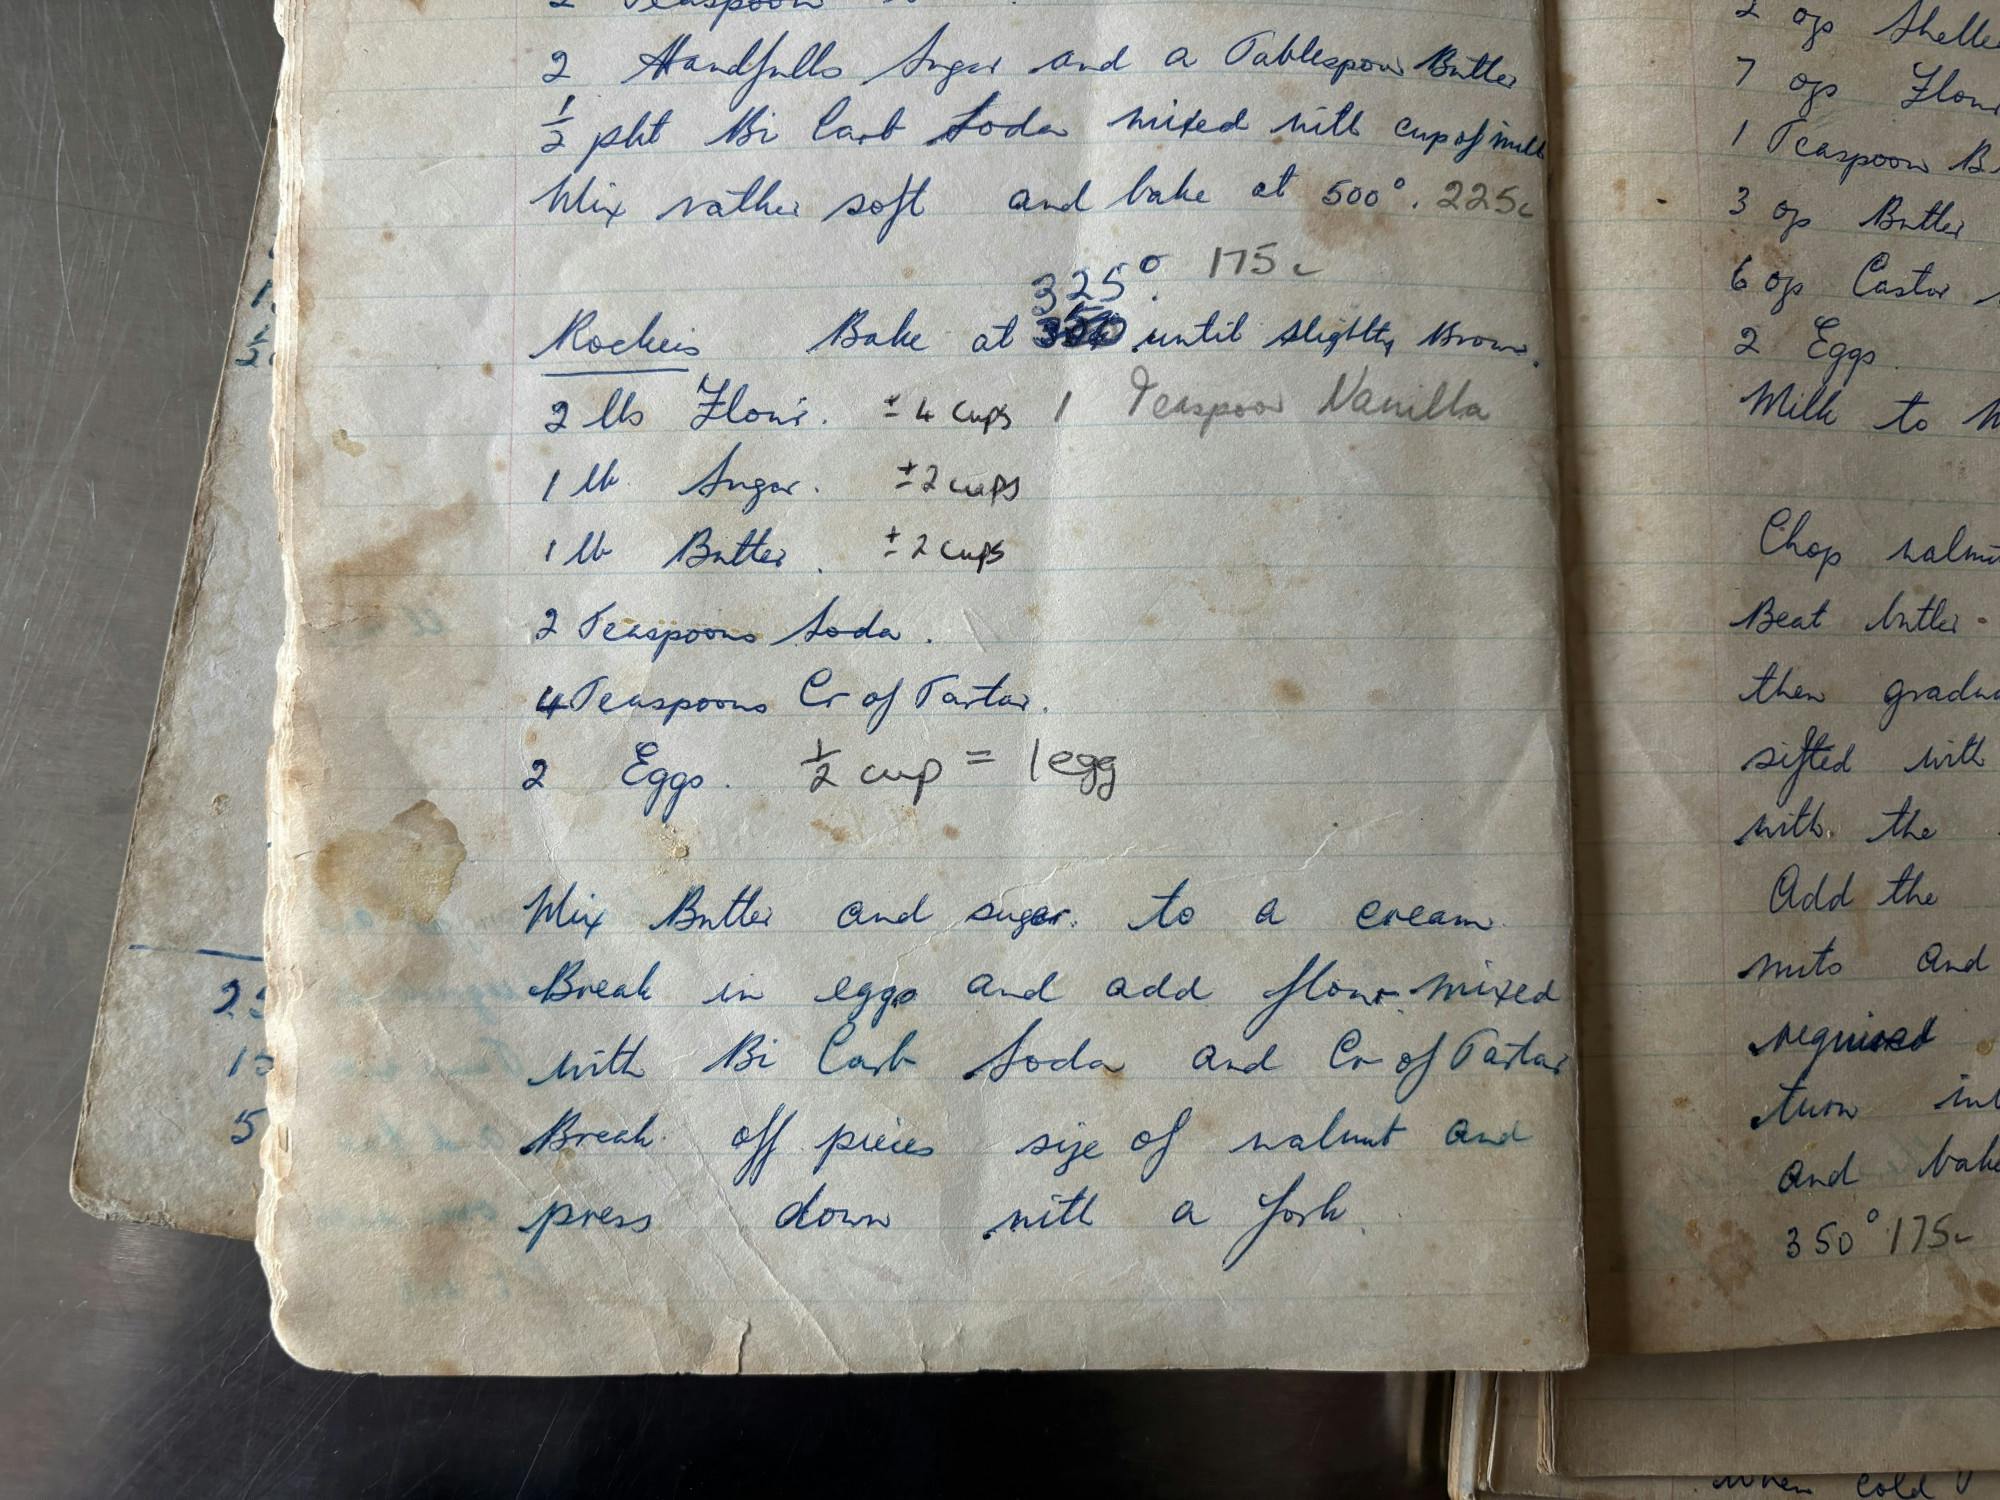 2 Teaspoon
2 Handfulls Sugar and a Tablespoon Butter
½ pkt Bi Carb Soda mixed with cup of milk
Mix rather soft and bake at 500°. 225c
325° 175c
Rockeis Bake at until slightly Brown.
2 lbs Flour. ± 4 cups 1 Teaspoon Vanilla
1 lb Sugar. ± 2 cups
1 lb Butter. ± 2 cups
2 Teaspoons Soda.
4 Teaspoons Cr of Tartar.
2 Eggs. ½ cup = 1 egg
Mix Butter and sugar. to a cream
Break in eggs and add flour mixed
with Bi Carb Soda and Cr of Tartar
Break off pieces size of walnut and
press down with a fork.
2 ozs Shelle
7 ozs Flour
1 Teaspoon B
3 oz Butter
6 ozs Castor
2 Eggs
Milk to
Chop walnu
Beat butter
then gradua
sifted with
with the
Add the
nuts and
required
turn int
and bake
350° 175c
when cold
1
2
25
15
5